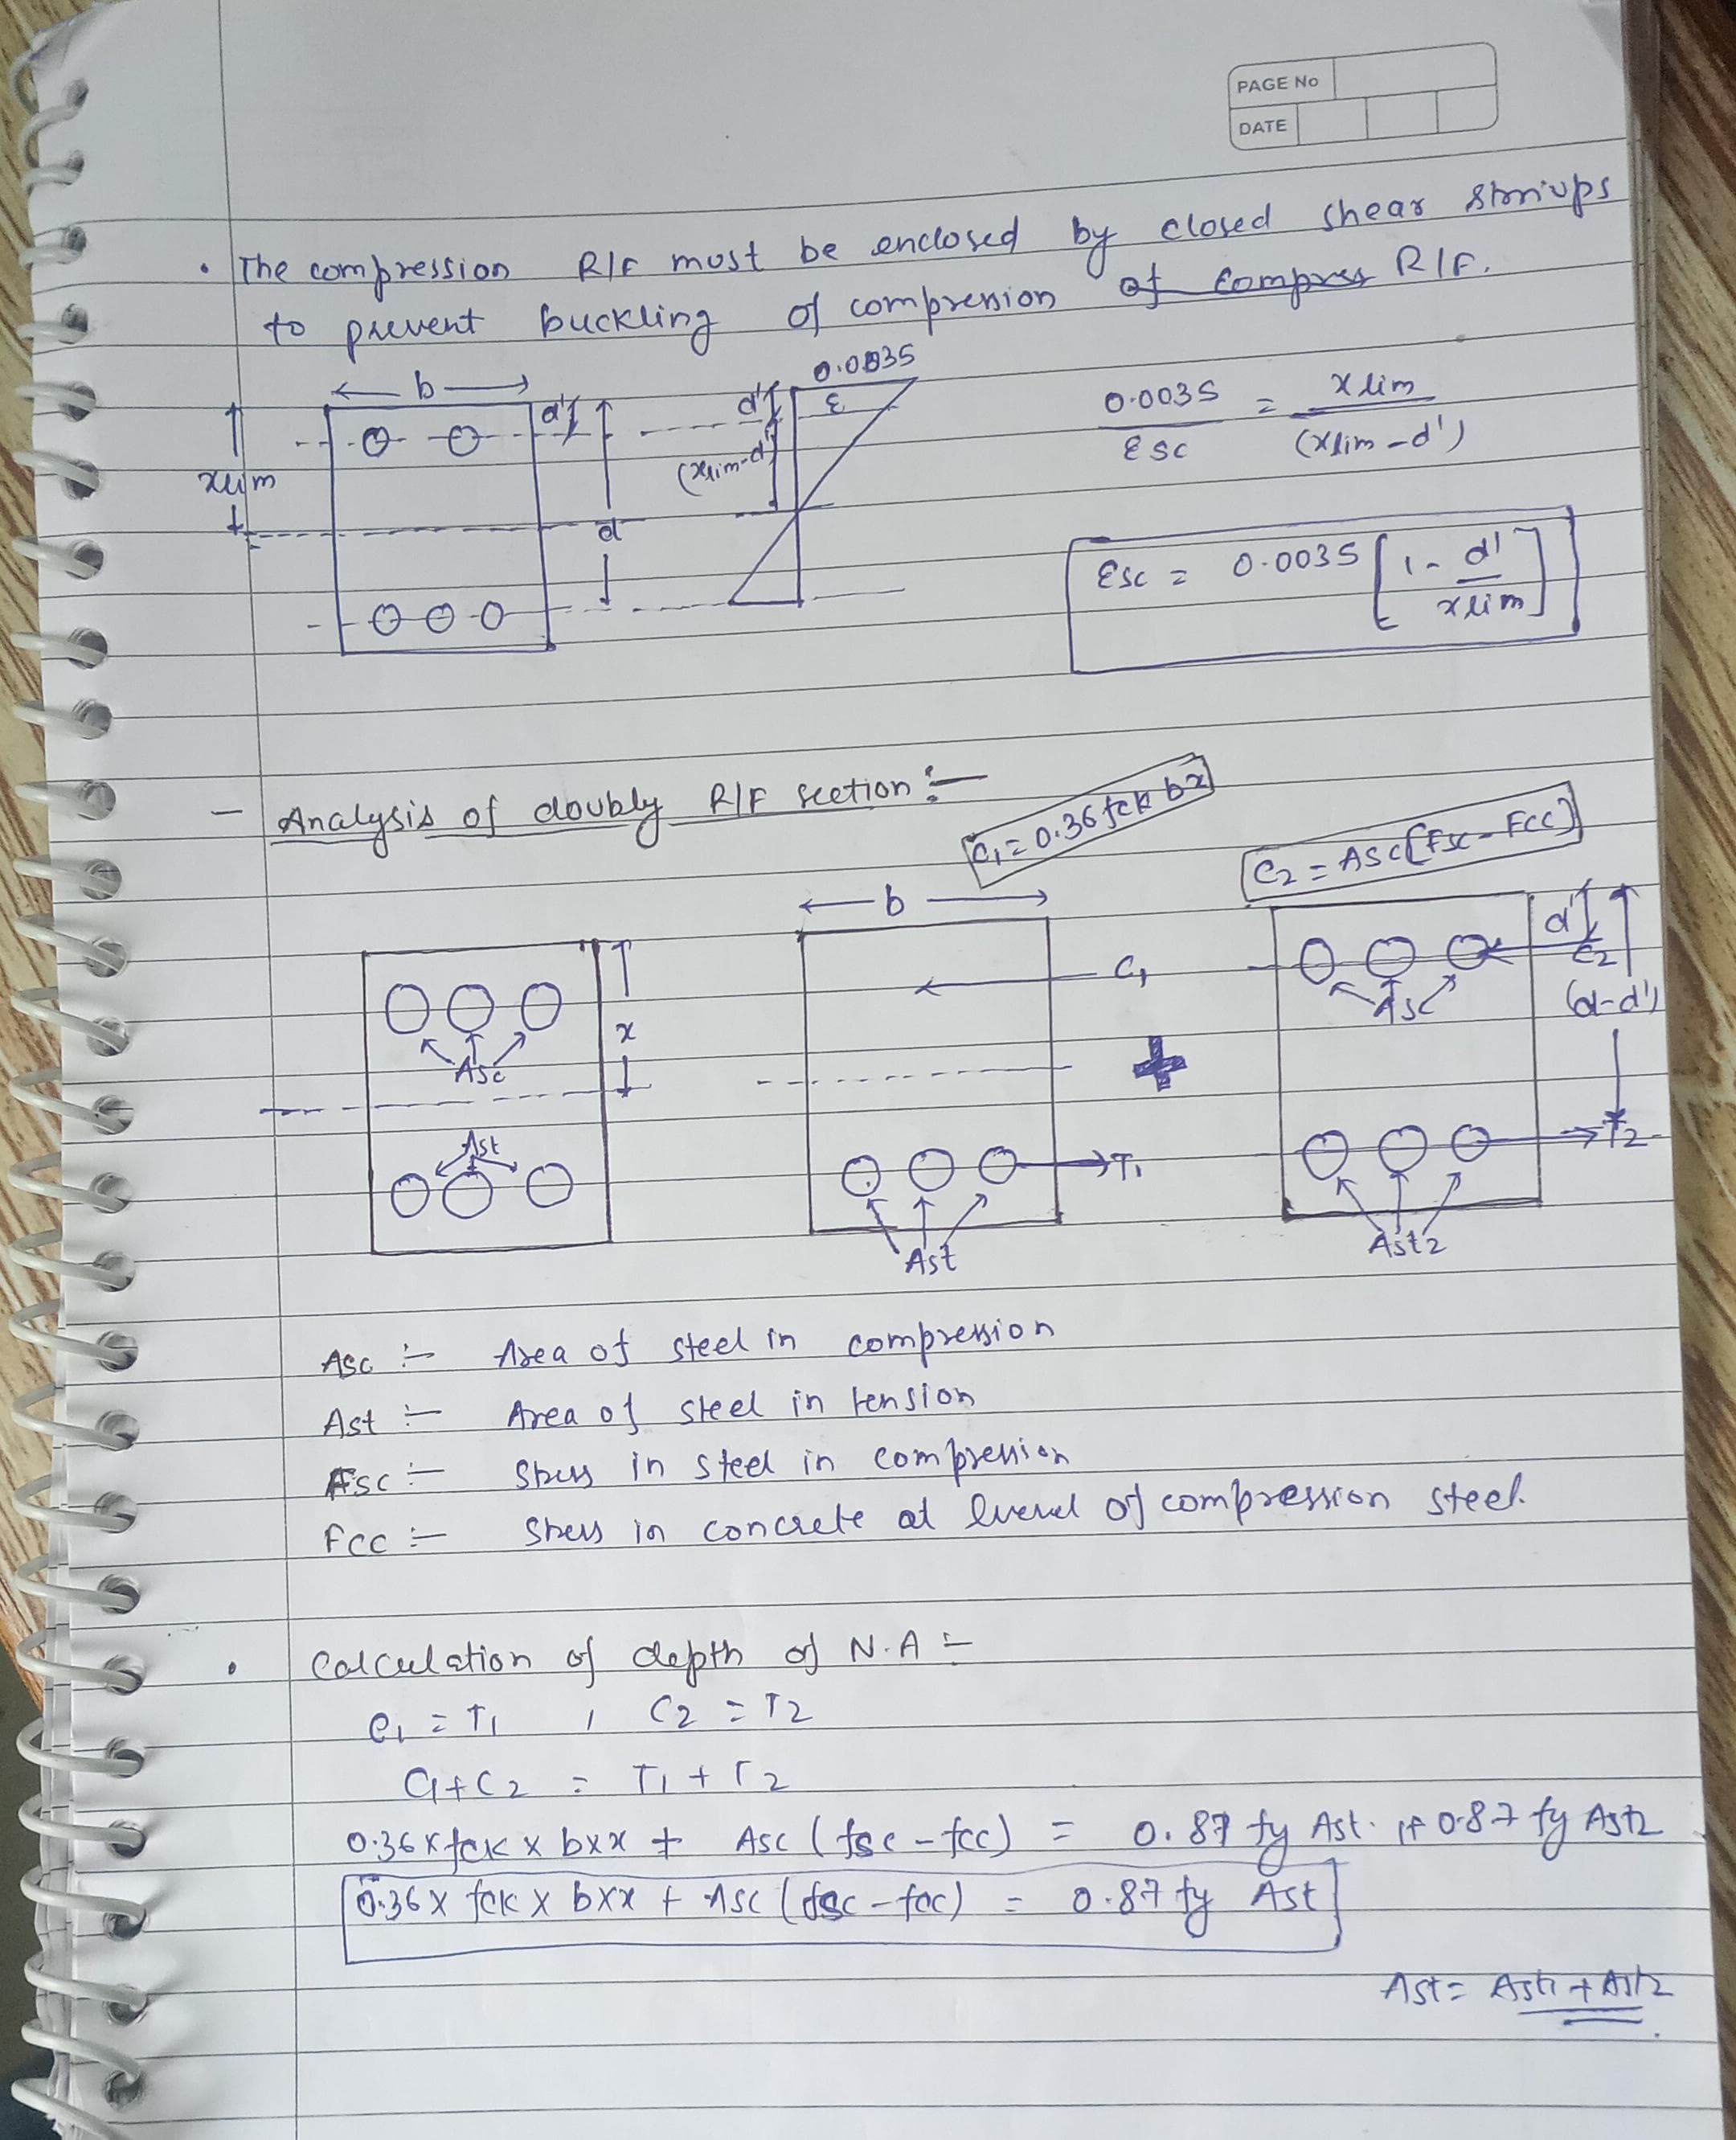 PAGE No
DATE
• The compression R/F must be enclosed by closed shear stirrups
to prevent buckling of compression of compress R/F.
b
d'
d'
0.0035
ε
xlim
(xlim-d')
d
0.0035 / Esc = xlim / (xlim-d')
Esc = 0.0035 [1- d'/xlim]
- Analysis of doubly R/F section :-
C1 = 0.36 fck bx
C2 = Asc[Fsc-Fcc]
b
x
Asc
Ast
C1
+
T1
Ast
d'
C2
Asc
(d-d')
T2
Ast2
Asc :- Area of steel in compression
Ast :- Area of steel in tension
Fsc :- Stress in steel in compression
Fcc :- Stress in concrete at leverel of compression steel.
• Calculation of depth of N.A :-
C1 = T1 , C2 = T2
C1+C2 = T1+T2
0.36 x fck x bxx + Asc (fsc-fcc) = 0.87 fy Ast. 1+ 0.87 fy Ast2
0.36 x fck x bxx + Asc (fsc-fcc) = 0.87 fy Ast
Ast = Ast1 + Ast2